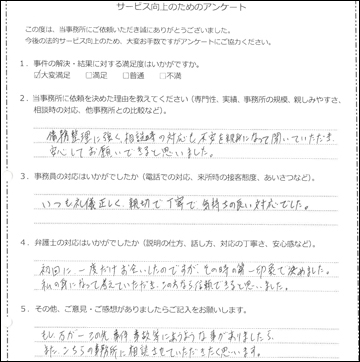 サービス向上のためのアンケート
この度は、当事務所にご依頼いただき誠にありがとうございました。
今後の法的サービス向上のため、大変お手数ですがアンケートにご協力ください。
1．事件の解決・結果に対する満足度はいかがですか。
☑大変満足　□満足　□普通　□不満
2．当事務所に依頼を決めた理由を教えてください（専門性、実績、事務所の規模、親しみやすさ、
相談時の対応、他事務所との比較など）。
債務整理に強く、相談時の対応も不安を親身になって聞いていただき、
安心してお願いできると思いました。
3．事務員の対応はいかがでしたか（電話での対応、来所時の接客態度、あいさつなど）。
いつも礼儀正しく、親切で丁寧で気持ちの良い対応でした。
4．弁護士の対応はいかがでしたか（説明の仕方、話し方、対応の丁寧さ、安心感など）。
初回に一度だけお会いしたのですが、その時の第一印象で決めました。
私の気になって考えていただき、この方なら信頼できると思いました。
5．その他、ご意見・ご感想がありましたらご記入をお願いします。
もし万が一この先事件事故等にあうような事がありましたら、
また、こちらの事務所に相談させていただきたく思います。